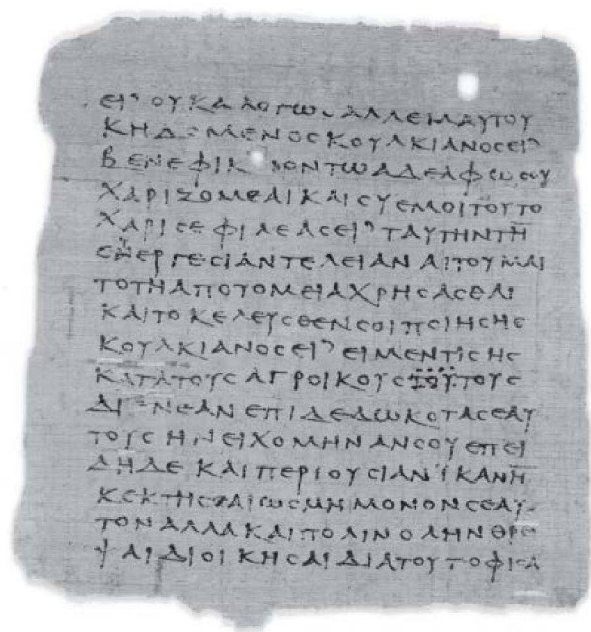 ΕΙ⁾ ΟΥΚΑΛΟΓΩϹ ΑΛΛΕΜΑΥΤΟΥ
ΚΗΔΟΜΕΝΟϹ ΚΟΥΛΚΙΑΝΟϹ ΕΙ⁾
ΒΕΝΕΦΙΚΙΟΝ ΤΩ ΑΔΕΛΦΩ ϹΟΥ
ΧΑΡΙΖΟΜΕΑΙ ΚΑΙ ϹΥ ΕΜΟΙ ΤΟΥΤΟ
ΧΑΡΙϹΕ ΦΙΛΕΑϹ ΕΙ⁾ ΤΑΥΤΗΝ ΤΗ̅
ΕΥΕΡΓΕϹΙΑΝ ΤΕΛΕΙΑΝ ΑΙΤΟΥΜΑΙ
ΤΟ ΤΗ ΑΠΟΤΟΜΕΙΑ ΧΡΗϹΑϹΘΑΙ
ΚΑΙ ΤΟ ΚΕΛΕΥϹΘΕΝ ϹΟΙ ΠΟΙΗϹΗϹ
ΚΟΥΛΚΙΑΝΟϹ ΕΙ⁾ ΕΙ ΜΕΝ ΤΙϹ ΗϹ
ΚΑΤΑ ΤΟΥϹ ΑΓΡΟΙΚΟΥϹ ΤΟΥΤΟΥϹ
ΔΙ ΕΝΕΑΝ ΕΠΙΔΕΔΩΚΟΤΑϹ ΕΑΥ
ΤΟΥϹ ΗΝΕΙΧΟΜΗΝ ΑΝ ϹΟΥ ΕΠΕΙ
ΔΗ ΔΕ ΚΑΙ ΠΕΡΙΟΥϹΙΑΝ ΙΚΑΝΗ̅
ΚΕΚΤΗϹΑΙ ΩϹ ΜΗ ΜΟΝΟΝ ϹΕΑΥ
ΤΟΝ ΑΛΛΑ ΚΑΙ ΠΟΛΙΝ ΟΛΗΝ ΘΡΕ
ΨΑΙ ΔΙΟΙΚΗϹΑΙ ΔΙΑ ΤΟΥΤΟ ΦΙϹΑ